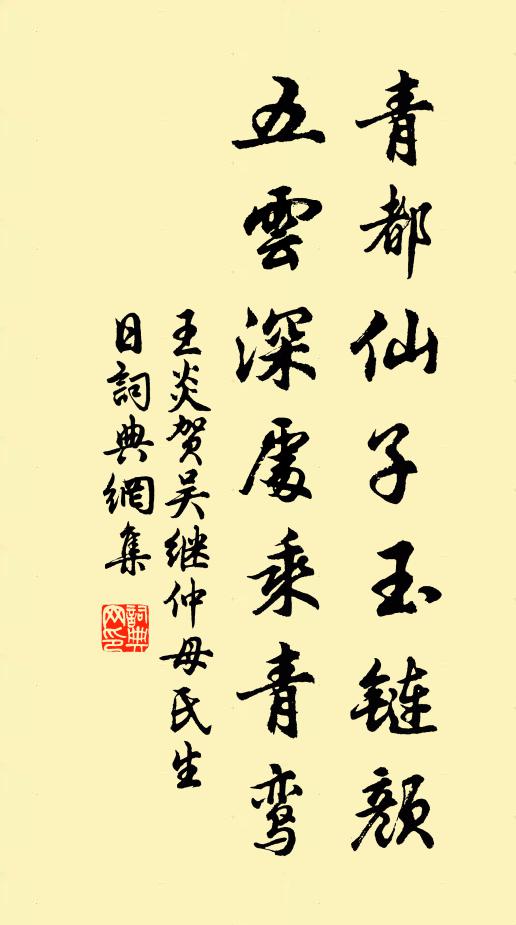 青都仙子玉鏈顏
五雲深處乘青鸾
王炎贺吴继仲母氏生
日詞典網集
詞典網印